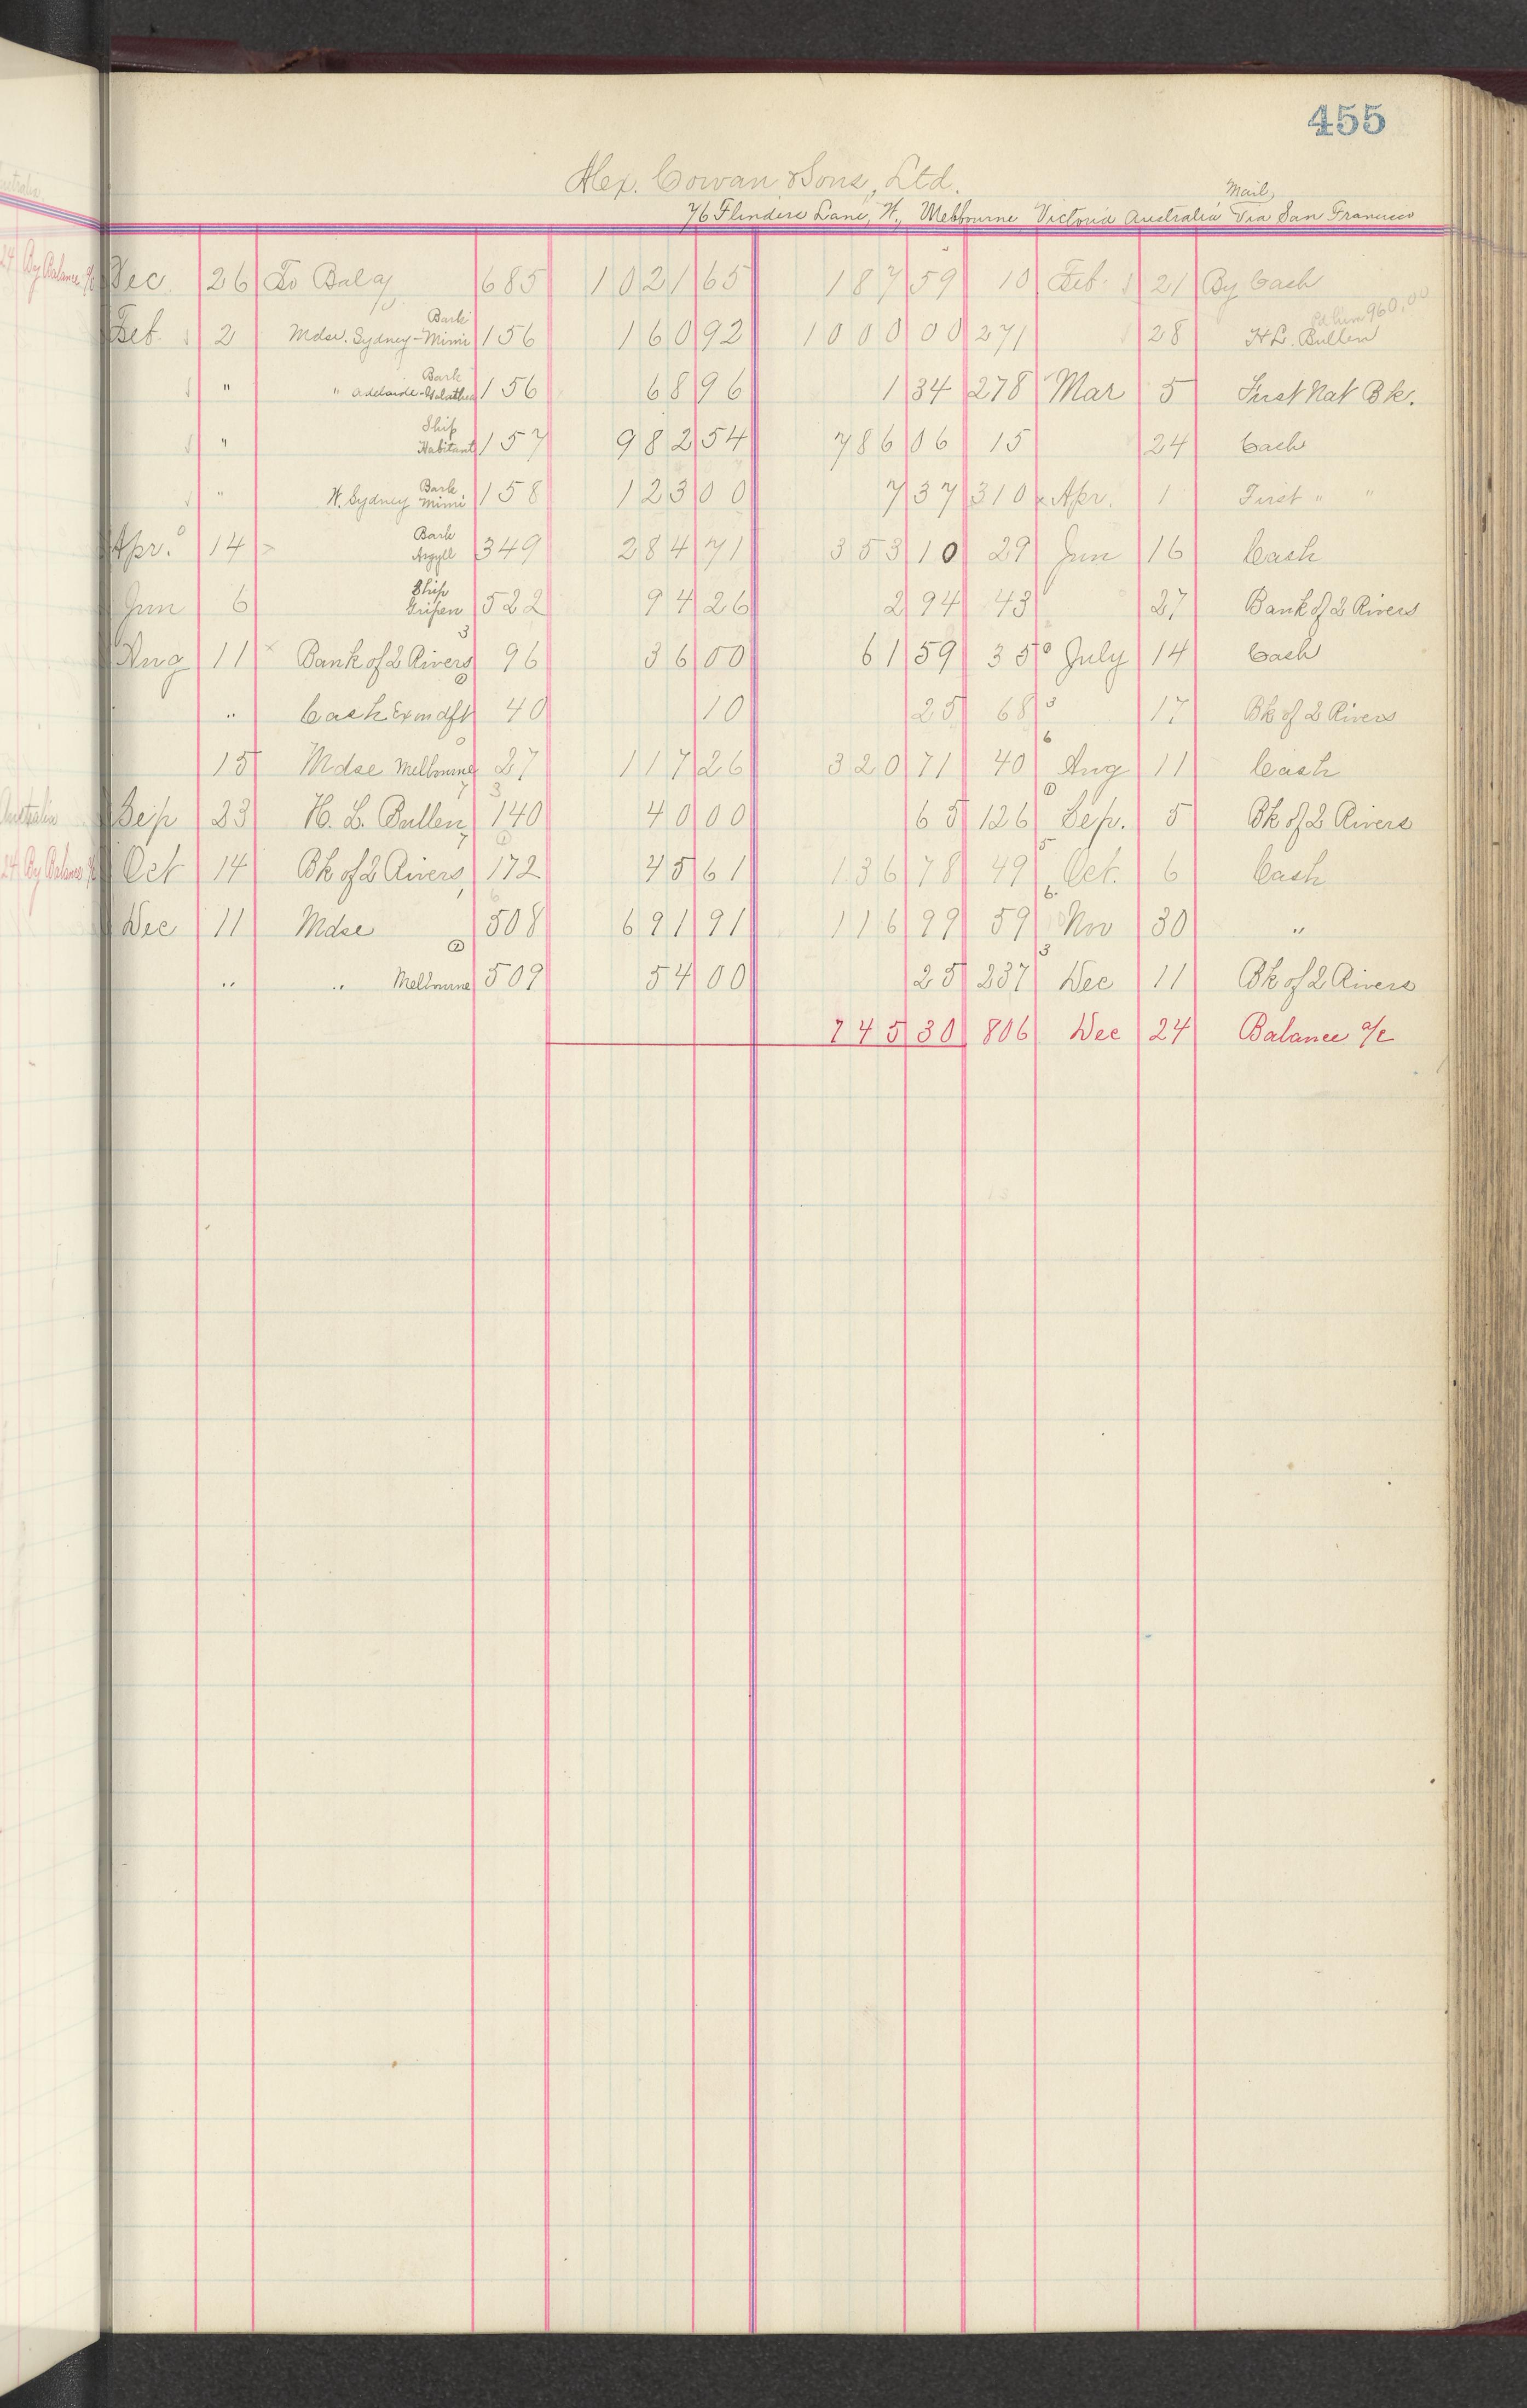 455
Alex. Cowan & Sons, Ltd.
Mail,
76 Flinders Lane, W., Melbourne Victoria Australia Via San Francisco
24 By Balance
Dec 26 To Bal 685 1021 65 187 59 10 Feb. 21 By Cash
960.00
Bark
Feb. 2 Mdse. Sydney - Mimi 156 160 92 1000 00 271 28 H.L. Bullen
Bark
" " Adelaide - Galathea 156 68 96 1 34 278 Mar 5 First Nat Bk.
Ship
" Habitant 157 982 54 786 06 15 24 Cash
Bark
" N. Sydney Mimi 158 123 00 7 37 310 Apr. 1 First " "
Bark
Apr. 14 Argyll 349 284 71 353 10 29 Jun 16 Cash
Ship
Jun 6 522 94 26 2 94 43 27 Bank of 2 Rivers
Aug 11 Bank of 2 Rivers 96 36 00 61 59 35 July 14 Cash
" Cash Ex on dft 40 10 25 68 17 Bk of 2 Rivers
15 Mdse Melbourne 27 117 26 320 71 40 Aug 11 Cash
Australia
Sep 23 H. L. Bullen 140 40 00 65 126 Sep. 5 Bk of 2 Rivers
24 By Balance
Oct 14 Bk of 2 Rivers 172 45 61 136 78 49 Oct. 6 Cash
Dec 11 Mdse 508 691 91 116 99 59 Nov 30 "
" " Melbourne 509 54 00 25 237 Dec 11 Bk of 2 Rivers
745 30 806 Dec 24 Balance a/c